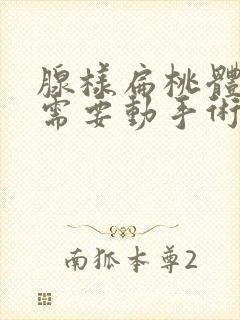 腺樣扁桃體
需要動手術
南狐本尊2